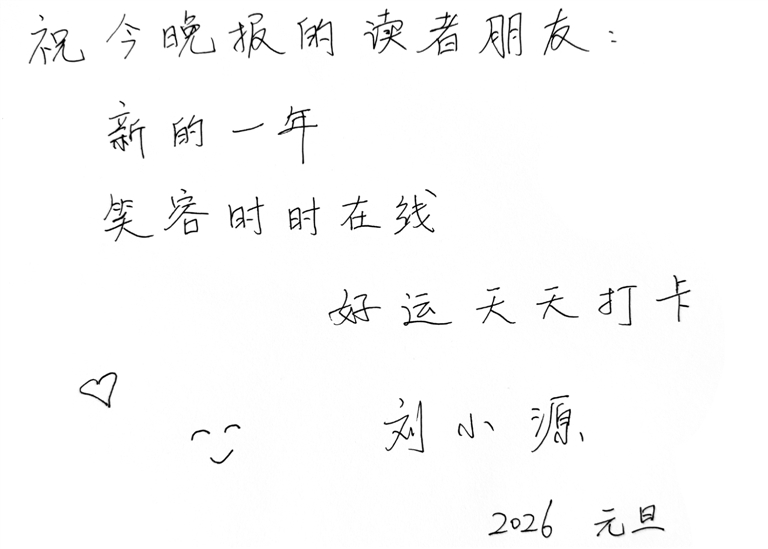 祝今晚报的读者朋友：
新的一年
笑容时时在线
好运天天打卡
刘小源
2026 元旦